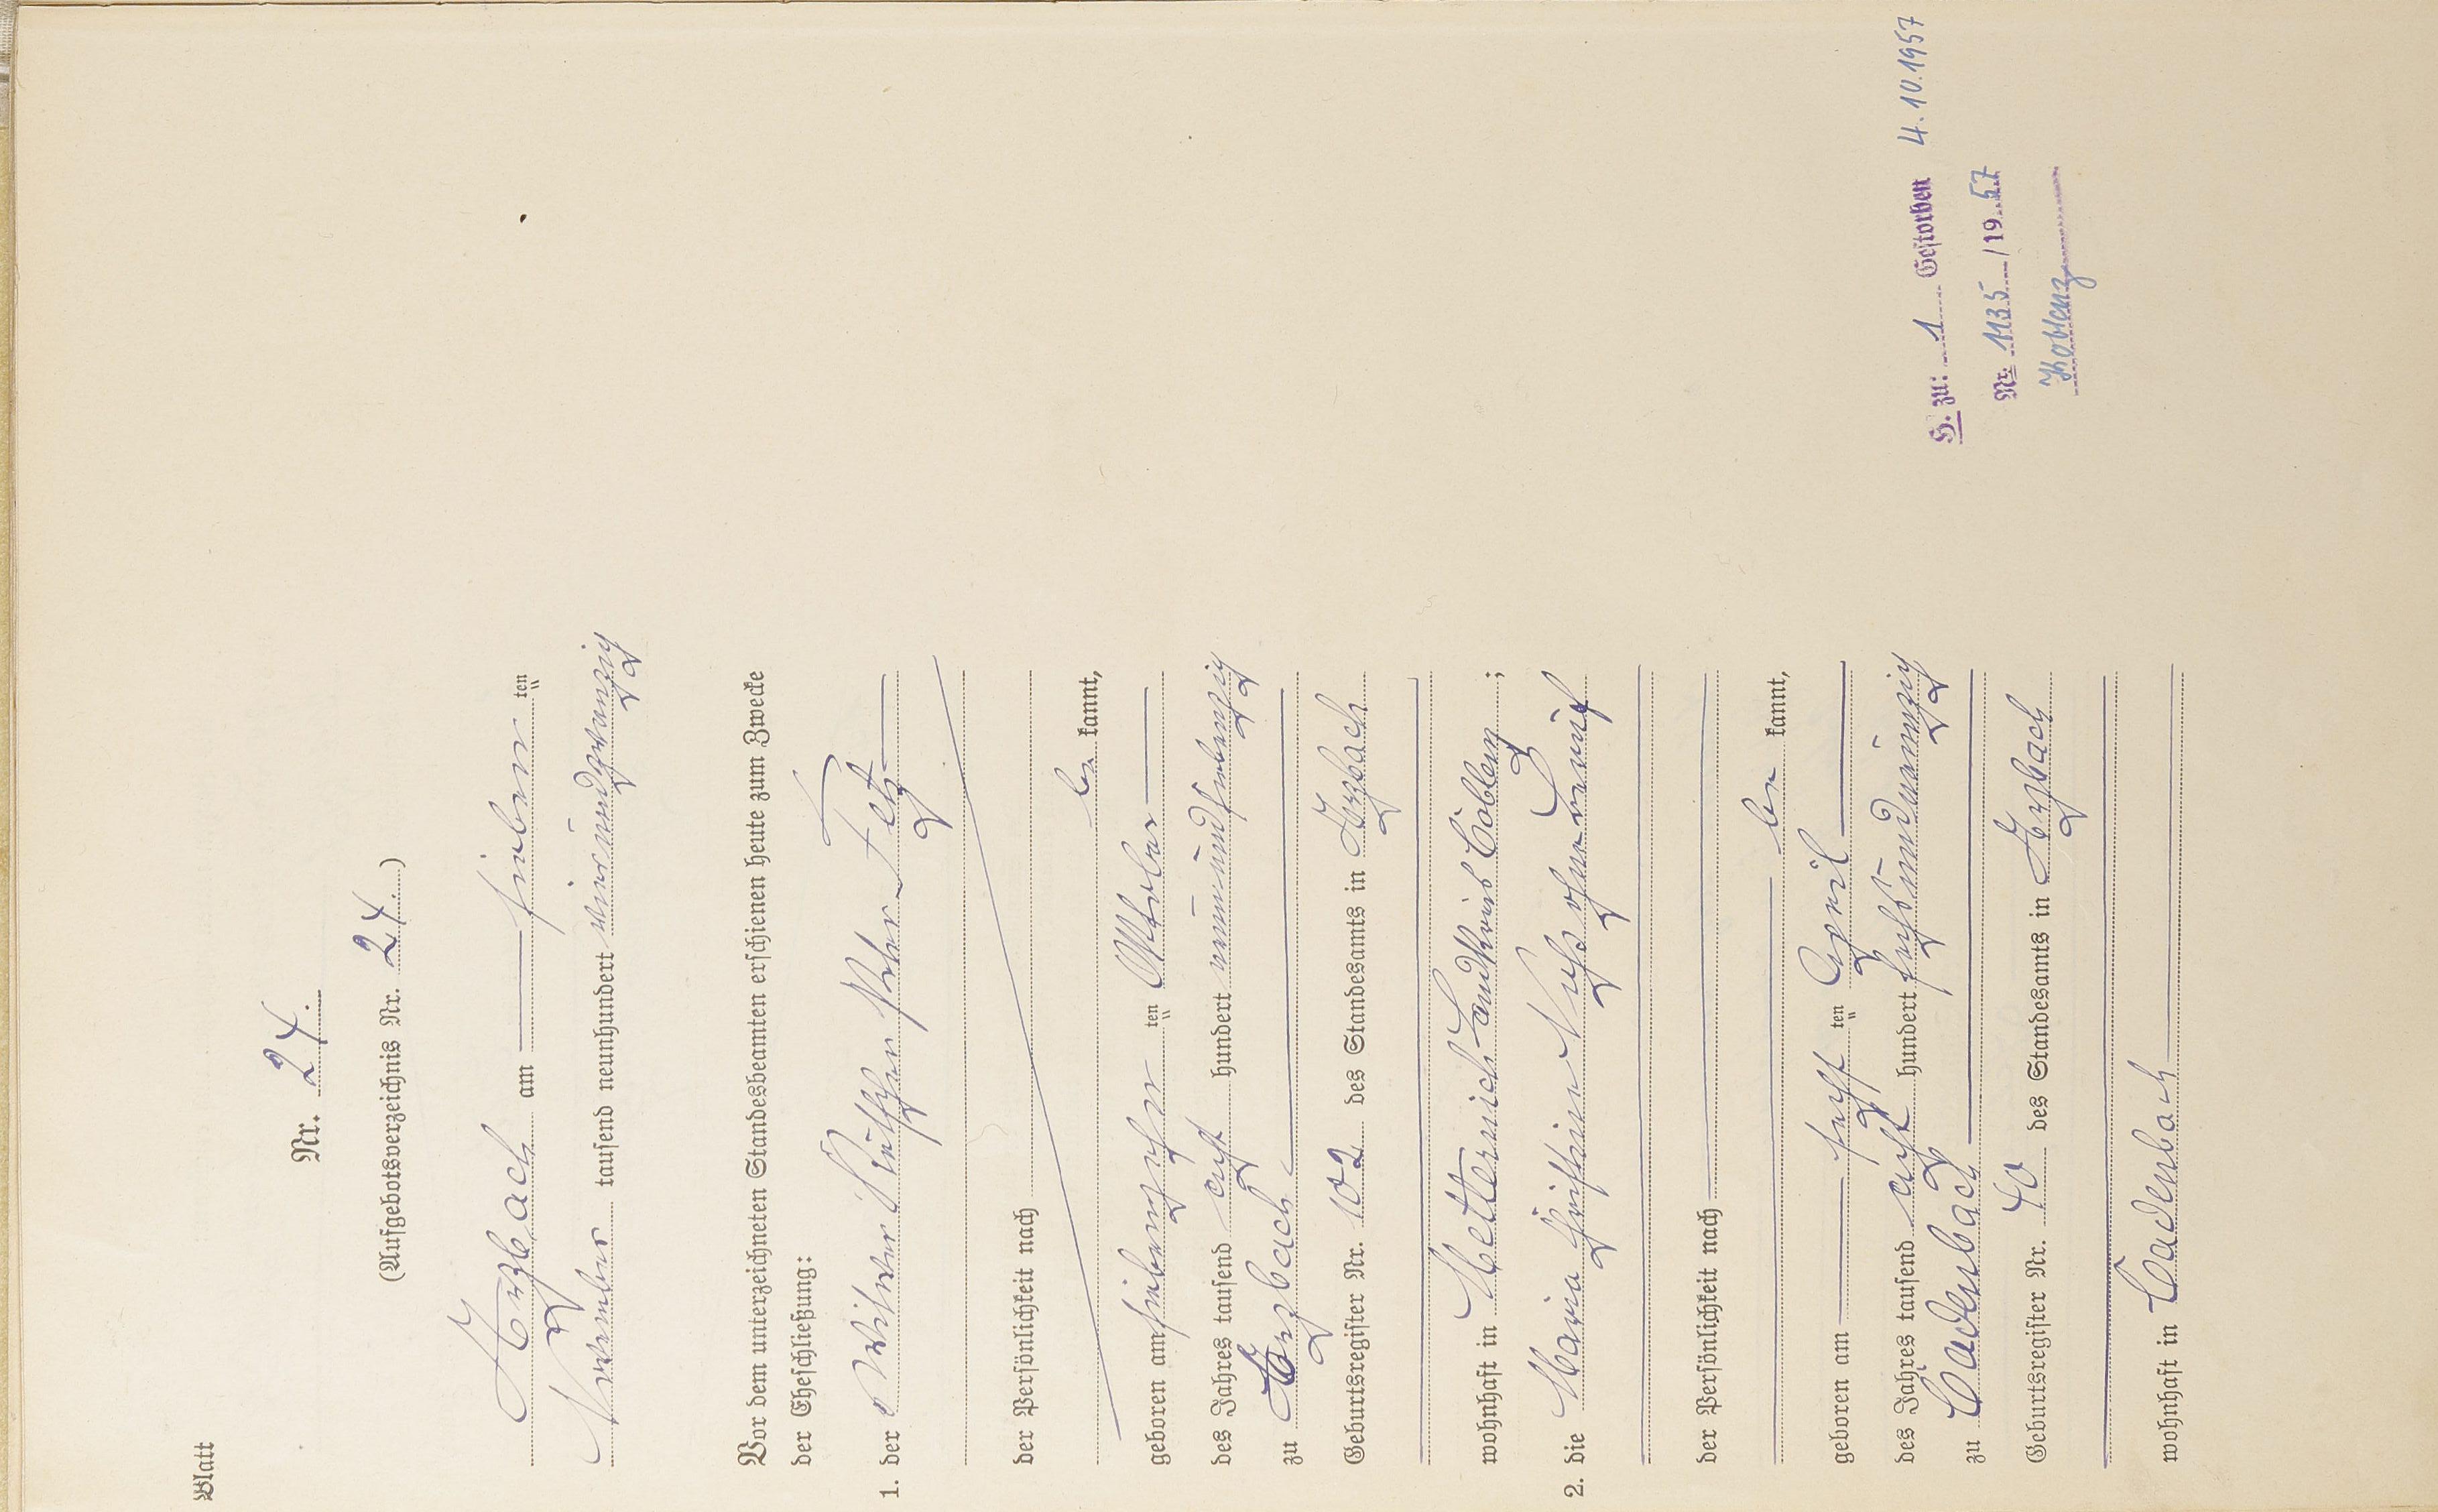 Blatt
Nr. 24.
(Aufgebotsverzeichnis Nr. 24.)
Arzbach am — sieben ten
November tausend neunhundert vierundzwanzig
Vor dem unterzeichneten Standesbeamten erschienen heute zum Zwecke
der Eheschließung:
1. der Witwer Peter Fetz
der Persönlichkeit nach
be kannt,
geboren am siebenzehn ten Oktober
des Jahres tausend acht hundert neunundsiebenzig
zu Arzbach
Geburtsregister Nr. 102 des Standesamts in Arzbach
wohnhaft in Metternich Landkreis Coblenz ;
2. die Maria Christine ohne Beruf
der Persönlichkeit nach
be kannt,
geboren am — ten April
des Jahres tausend acht hundert
zu Cadenbach
Geburtsregister Nr. 40 des Standesamts in Arzbach
wohnhaft in Cadenbach
H. zu: 1 Gestorben 4.10.1957
Nr. 1135 /19 57
Koblenz